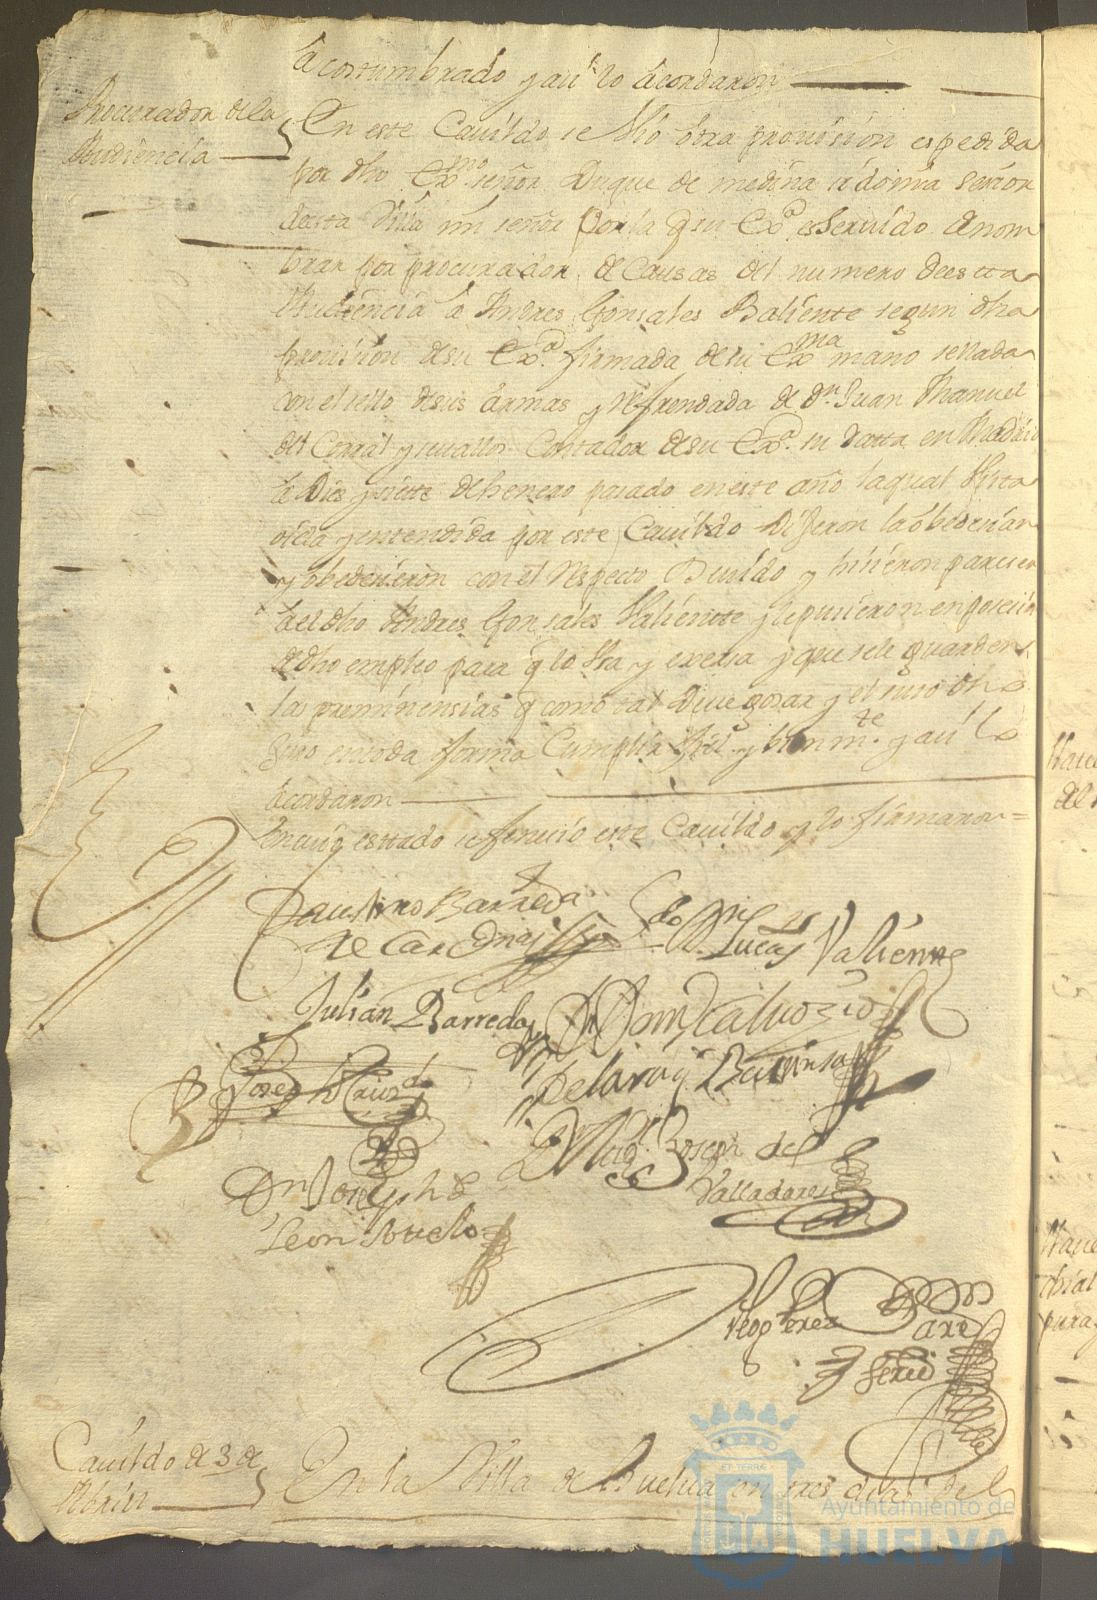 acostumbrado y assi lo acordaron
Procurador de la
Audiencia
En este Cavildo se vio otra provision espedida
por dho Exmo señor Duque de medina sidonia señor
desta Villa mi señor por la q su Exª es servido de nom
brar por procurador de causas del numero de esta
Audiencia a Andres Gonsales Baliente segun dha
provision de su Exª firmada de su Exma mano sellada
con el sello de sus armas y refrendada de Dn Juan Manuel
del Corral y sevallos Contador de su Exª su datta en Madrid
a Dies y siette de henero pasado en este año la qual vista
oida y entendida por este Cavildo Dijeron la obedecian
y obedecieron con el respecto Devido y hisieron parecer
a el dho Andres Gonsales Valiente y le pusieron en posesion
de dho empleo para q lo usa y exersa y que se le guarden
las preminensias q como tal Deve gosar y el suso dho
juro en toda forma Cumplir fiel y bien mte y assi lo
acordaron
En cuio esttado se fenecio este Cavildo y lo firmaron =
Faustino Barreda
de Cardenas
Lucas Valiente
Julian Barreda
Joseph
Dn Joseph de
Leon Sotelo
Joseph del
Valladares
Diego Perez
Cavildo de 3 de
Abril
En la Villa de Huelva en tres dias del
Ayuntamiento de
HUELVA